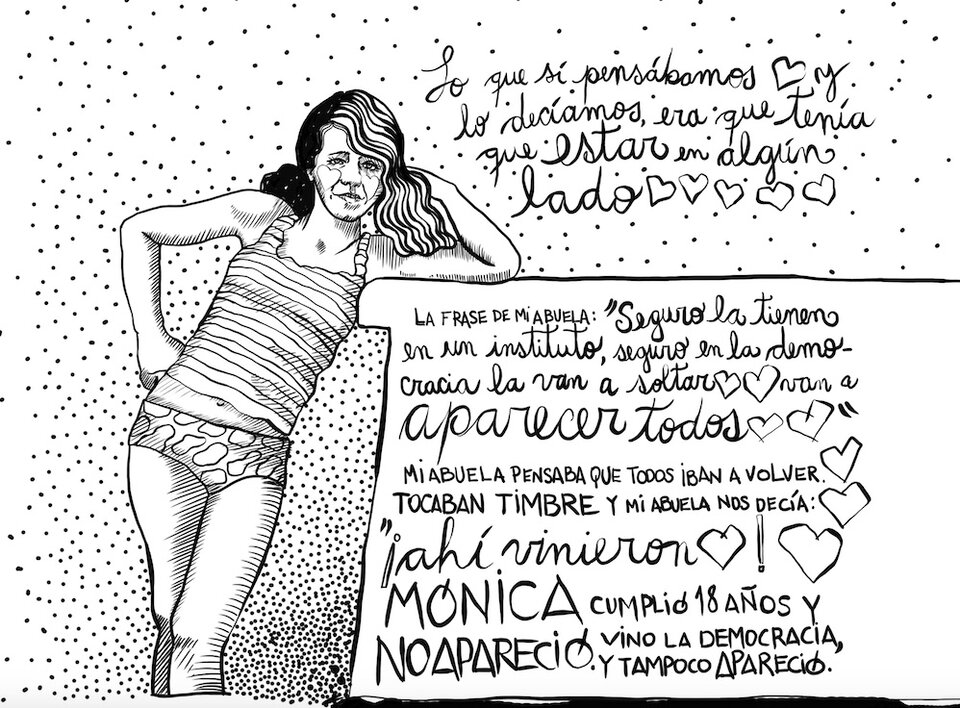 Lo que sí pensábamos y
lo decíamos, era que tenía
que estar en algún
lado
LA FRASE DE MI ABUELA: "Seguro la tienen
en un instituto, seguro en la demo-
cracia la van a soltar van a
aparecer todos"
MI ABUELA PENSABA QUE TODOS IBAN A VOLVER.
TOCABAN TIMBRE Y MI ABUELA NOS DECÍA:
"¡ahí vinieron!
MÓNICA CUMPLIÓ 18 AÑOS Y
NO APARECIÓ. VINO LA DEMOCRACIA,
Y TAMPOCO APARECIÓ."